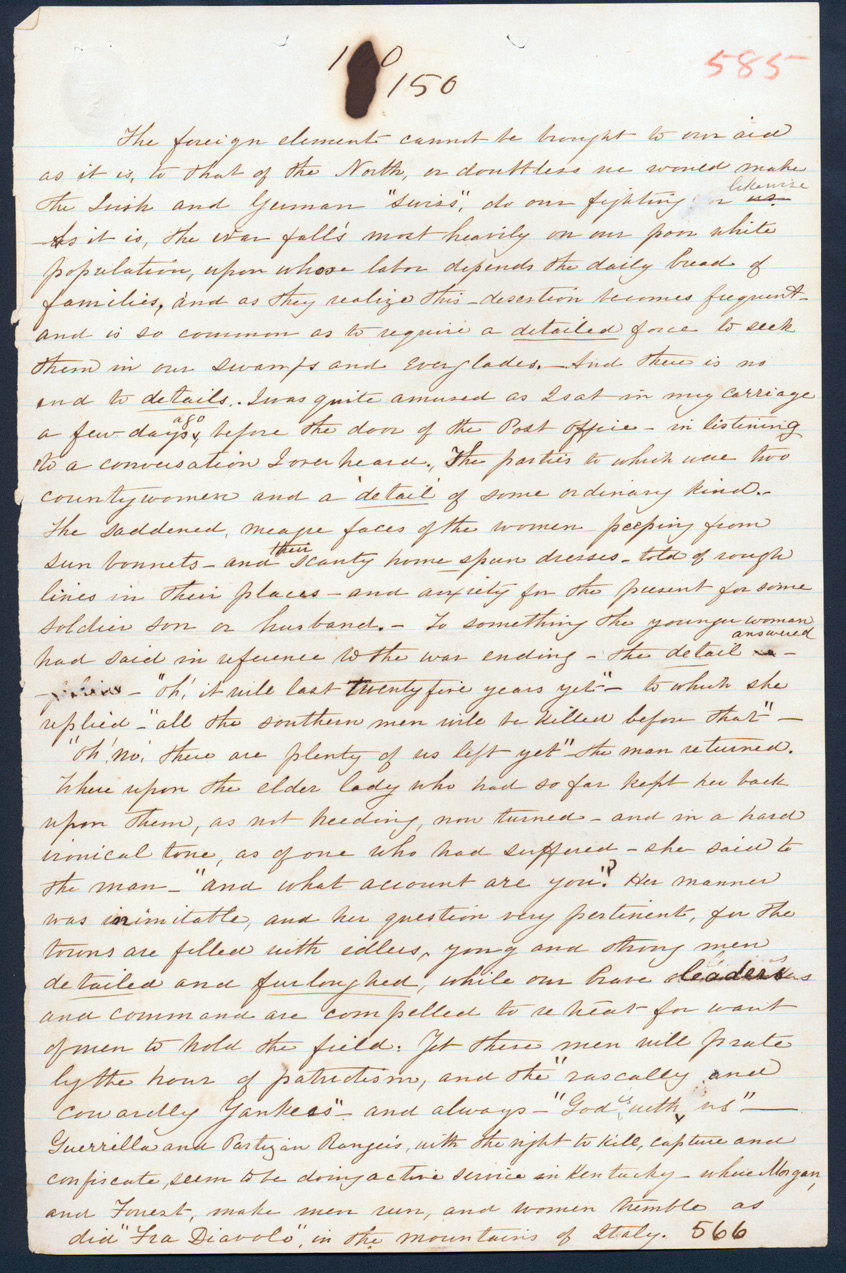 585
150
The foreign element cannot be brought to our aid
as it is, to that of the North, or doubtless we would make
likewise
the Irish and German "Swiss", do our fighting
As it is, the war fall's most heavily on our poor white
population, upon whose labor depends the daily bread of
families, and as they realize this - desertion becomes frequent -
and is so common as to require a detailed force to seek
them in our swamps and Everglades. - And there is no
end to details. I was quite amused as I sat in my carriage
ago
a few days, before the door of the Post office - in listening
to a conversation I overheard, The parties to which were two
countywomen and a 'detail' of some ordinary kind. -
The saddened, meagre faces of the women peeping from
their
sun bonnets - and scanty home spun dresses - told of rough
lines in their places - and anxiety for the present for some
soldier son or husband. - To something the younger woman
answered
had said in reference to the war ending - the detail
- "Oh', it will last twenty five years yet" - to which she
replied - "all the southern men will be killed before that" -
"Oh! no', there are plenty of us left yet" the man returned.
Where upon the elder lady who had so far kept her back
upon them, as not heeding, now turned - and in a hard
ironical tone, as of one who had suffered - she said to
the man - "and what account are you"? Her manner
was inimitable, and her question very pertinent, for the
towns are filled with idlers, young and strong men
detailed and furloughed, while our brave leaders
and command are compelled to retreat for want
of men to hold the field: Yet these men will prate
by the hour of patriotism, and the "rascally and
cowardly Yankees" and always - "God with us" -
Guerrilla and Partizan Rangers, with the right to kill, capture and
confiscate, seem to be doing active service in Kentucky - where Morgan,
and Forrest, make men run, and women tremble as
did "Fra Diavolo", in the mountains of Italy. 566